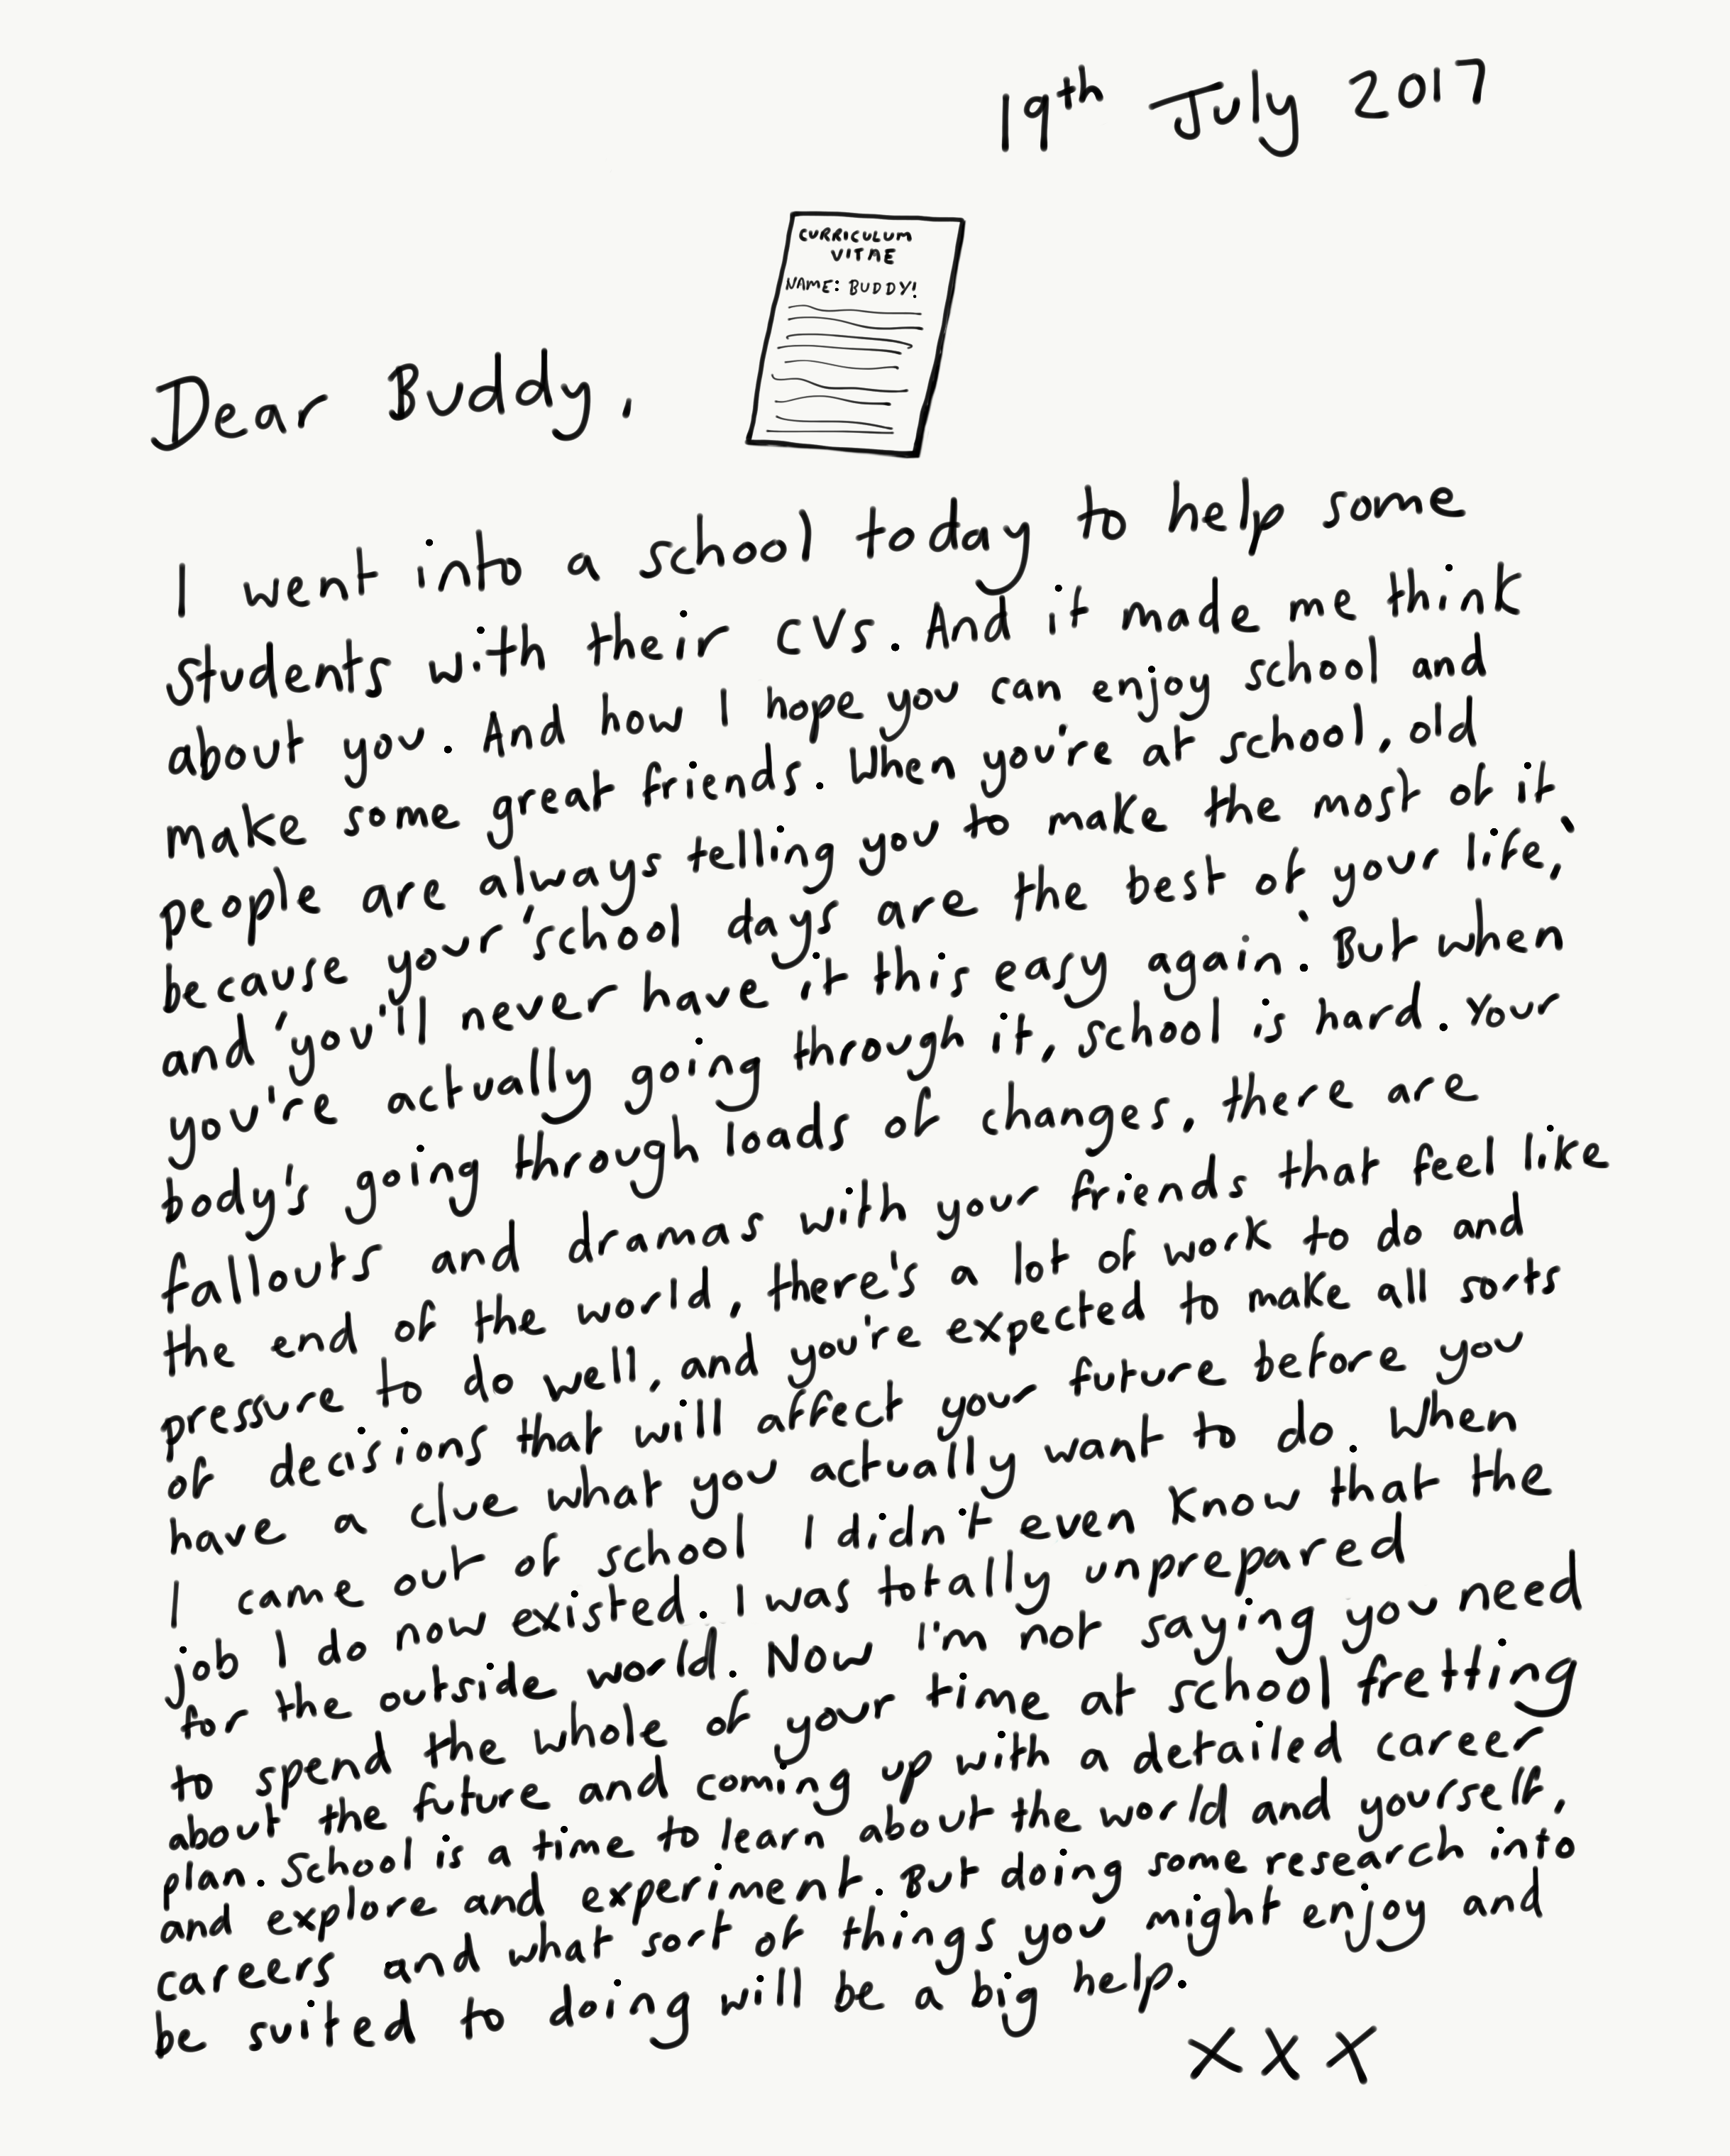 19th July 2017
CURRICULUM
VITAE
NAME: BUDDY!
Dear Buddy,
I went into a school today to help some
students with their CVs. And it made me think
about you. And how I hope you can enjoy school and
make some great friends. When you're at school, old
people are always telling you to make the most of it
because your 'school days are the best of your life,'
and 'you'll never have it this easy again.' But when
you're actually going through it, school is hard. Your
body's going through loads of changes, there are
fallouts and dramas with your friends that feel like
the end of the world, there's a lot of work to do and
pressure to do well, and you're expected to make all sorts
of decisions that will affect your future before you
have a clue what you actually want to do. When
I came out of school I didn't even know that the
job I do now existed. I was totally unprepared
for the outside world. Now I'm not saying you need
to spend the whole of your time at school fretting
about the future and coming up with a detailed career
plan. School is a time to learn about the world and yourself,
and explore and experiment. But doing some research into
careers and what sort of things you might enjoy and
be suited to doing will be a big help.
XXX